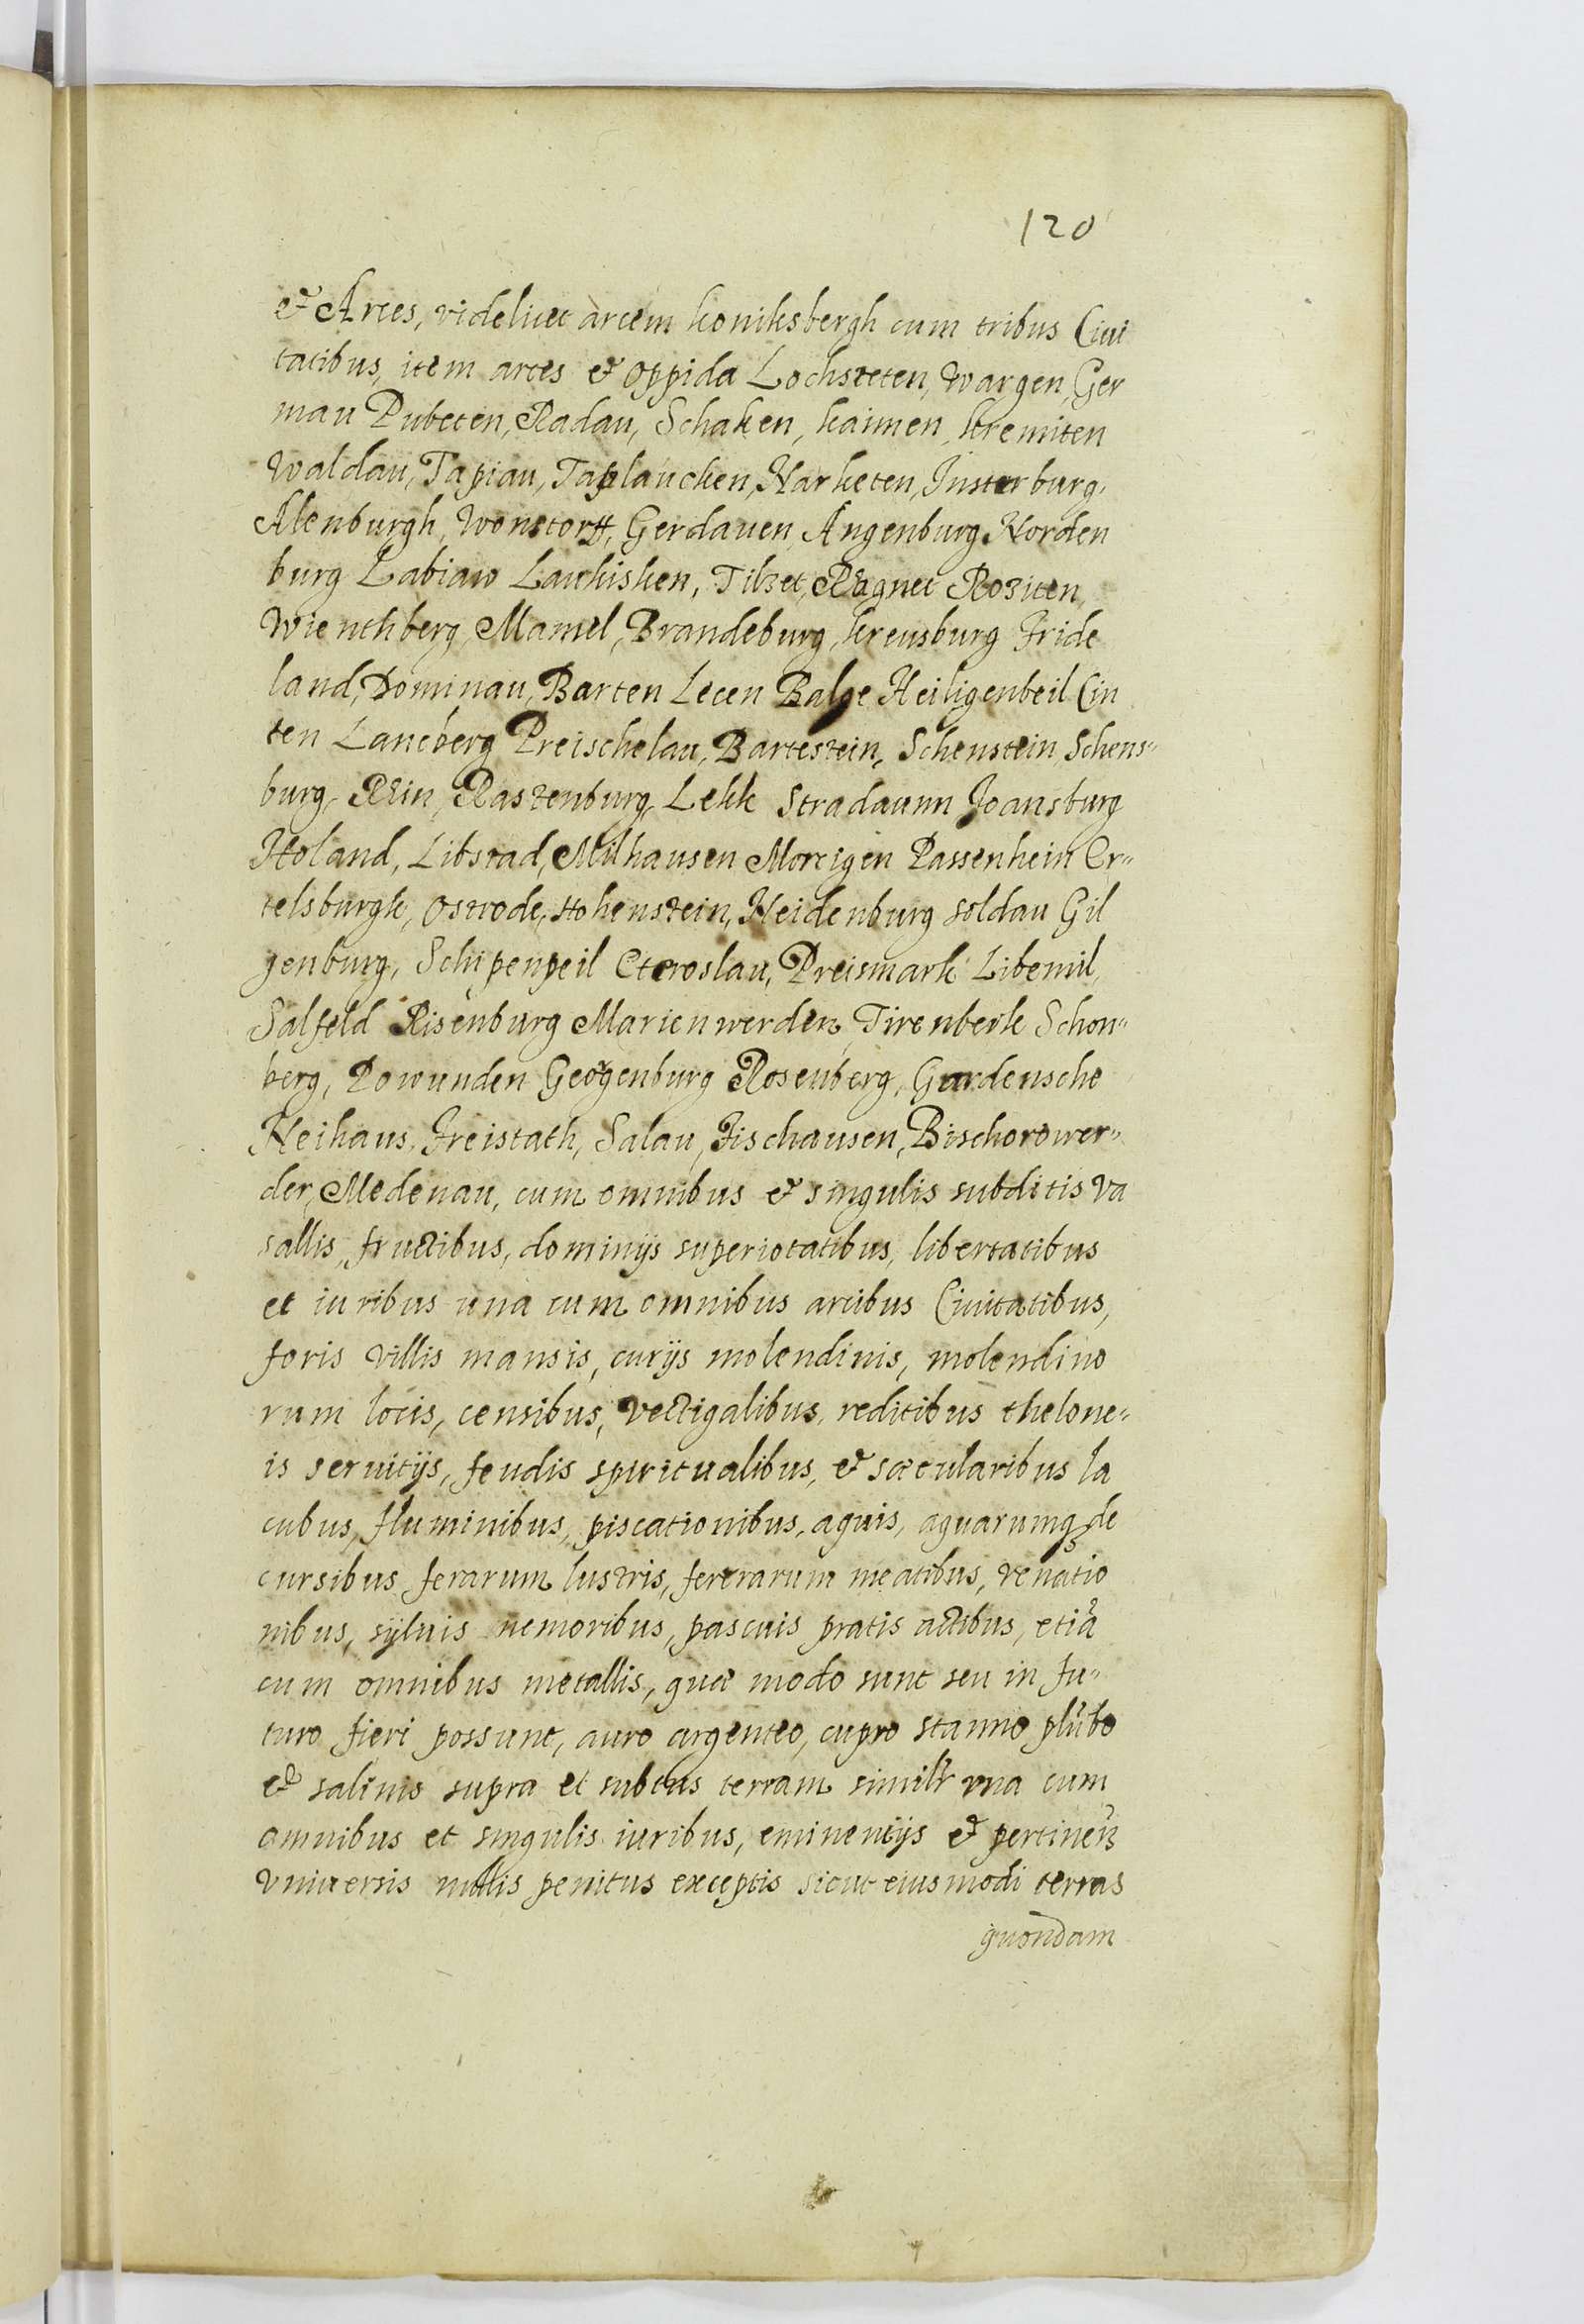 120
& Arces, videlicet arcem koniksbergh cum tribus Ciui
tatibus, item arces & oppida Lochsteten, Wargen, Ger
mau Pubeten, Radau, Schaken, kaimen, kremiten
Waldau, Tapiau, Taplaucken, Narketen, Insterburg,
Alenburgh, Wonstorff, Gerdauen, Angenburg Norden
burg Labiaw Laukisken, Tilzet, Ragnet Roziten,
Wienthberg, Mamel, Brandeburg, kreusburg Fride
land, Dominau, Barten Lecen Balge Heiligenbeil Cin
ten Lancberg Preischelau, Bartestein, Schenstein, Schens„
burg, Rein, Rastenburg, Lekk Stradaunn Joansburg
Holand, Libstad, Milhausen Morcigen Passenhein Or„
telsburgk, Ostrode, Hohenstein, Neidenburg soldau Gil
genburg, Schipenpeil Cteroslau, Preismark Libemil,
Salfeld Risenburg Marienwerden, Tirenberk Schon„
berg, Powunden Georgenburg Rosenberg, Gardensche
Neihaus, Freistath, Salau, Fischausen, Bischorower„
der, Medenau, cum omnibus & singulis subditis va
sallis, fructibus, dominijs superiotatibus, libertatibus
et iuribus una cum omnibus arcibus Ciuitatibus,
foris villis mansis, curijs molendinis, molendino
rum locis, censibus, vectigalibus, reditibus thelone„
is seruitijs, feudis spiritualibus, & sæcularibus la
cubus, fluminibus, piscationibus, aquis, aquarumq de
cursibus, ferarum lustris, fererarum meatibus, venatio
nibus, syluis nemoribus, pascuis pratis actibus, etiã
cum omnibus metallis, quæ modo sunt seu in fu„
turo fieri possunt, auro argenteo, cupro stanno plũbo
& salinis supra et subtus terram similr vna cum
omnibus et singulis iuribus, eminentijs & pertinen
vniuersis nullis penitus exceptis sicut eiusmodi terras
quondam